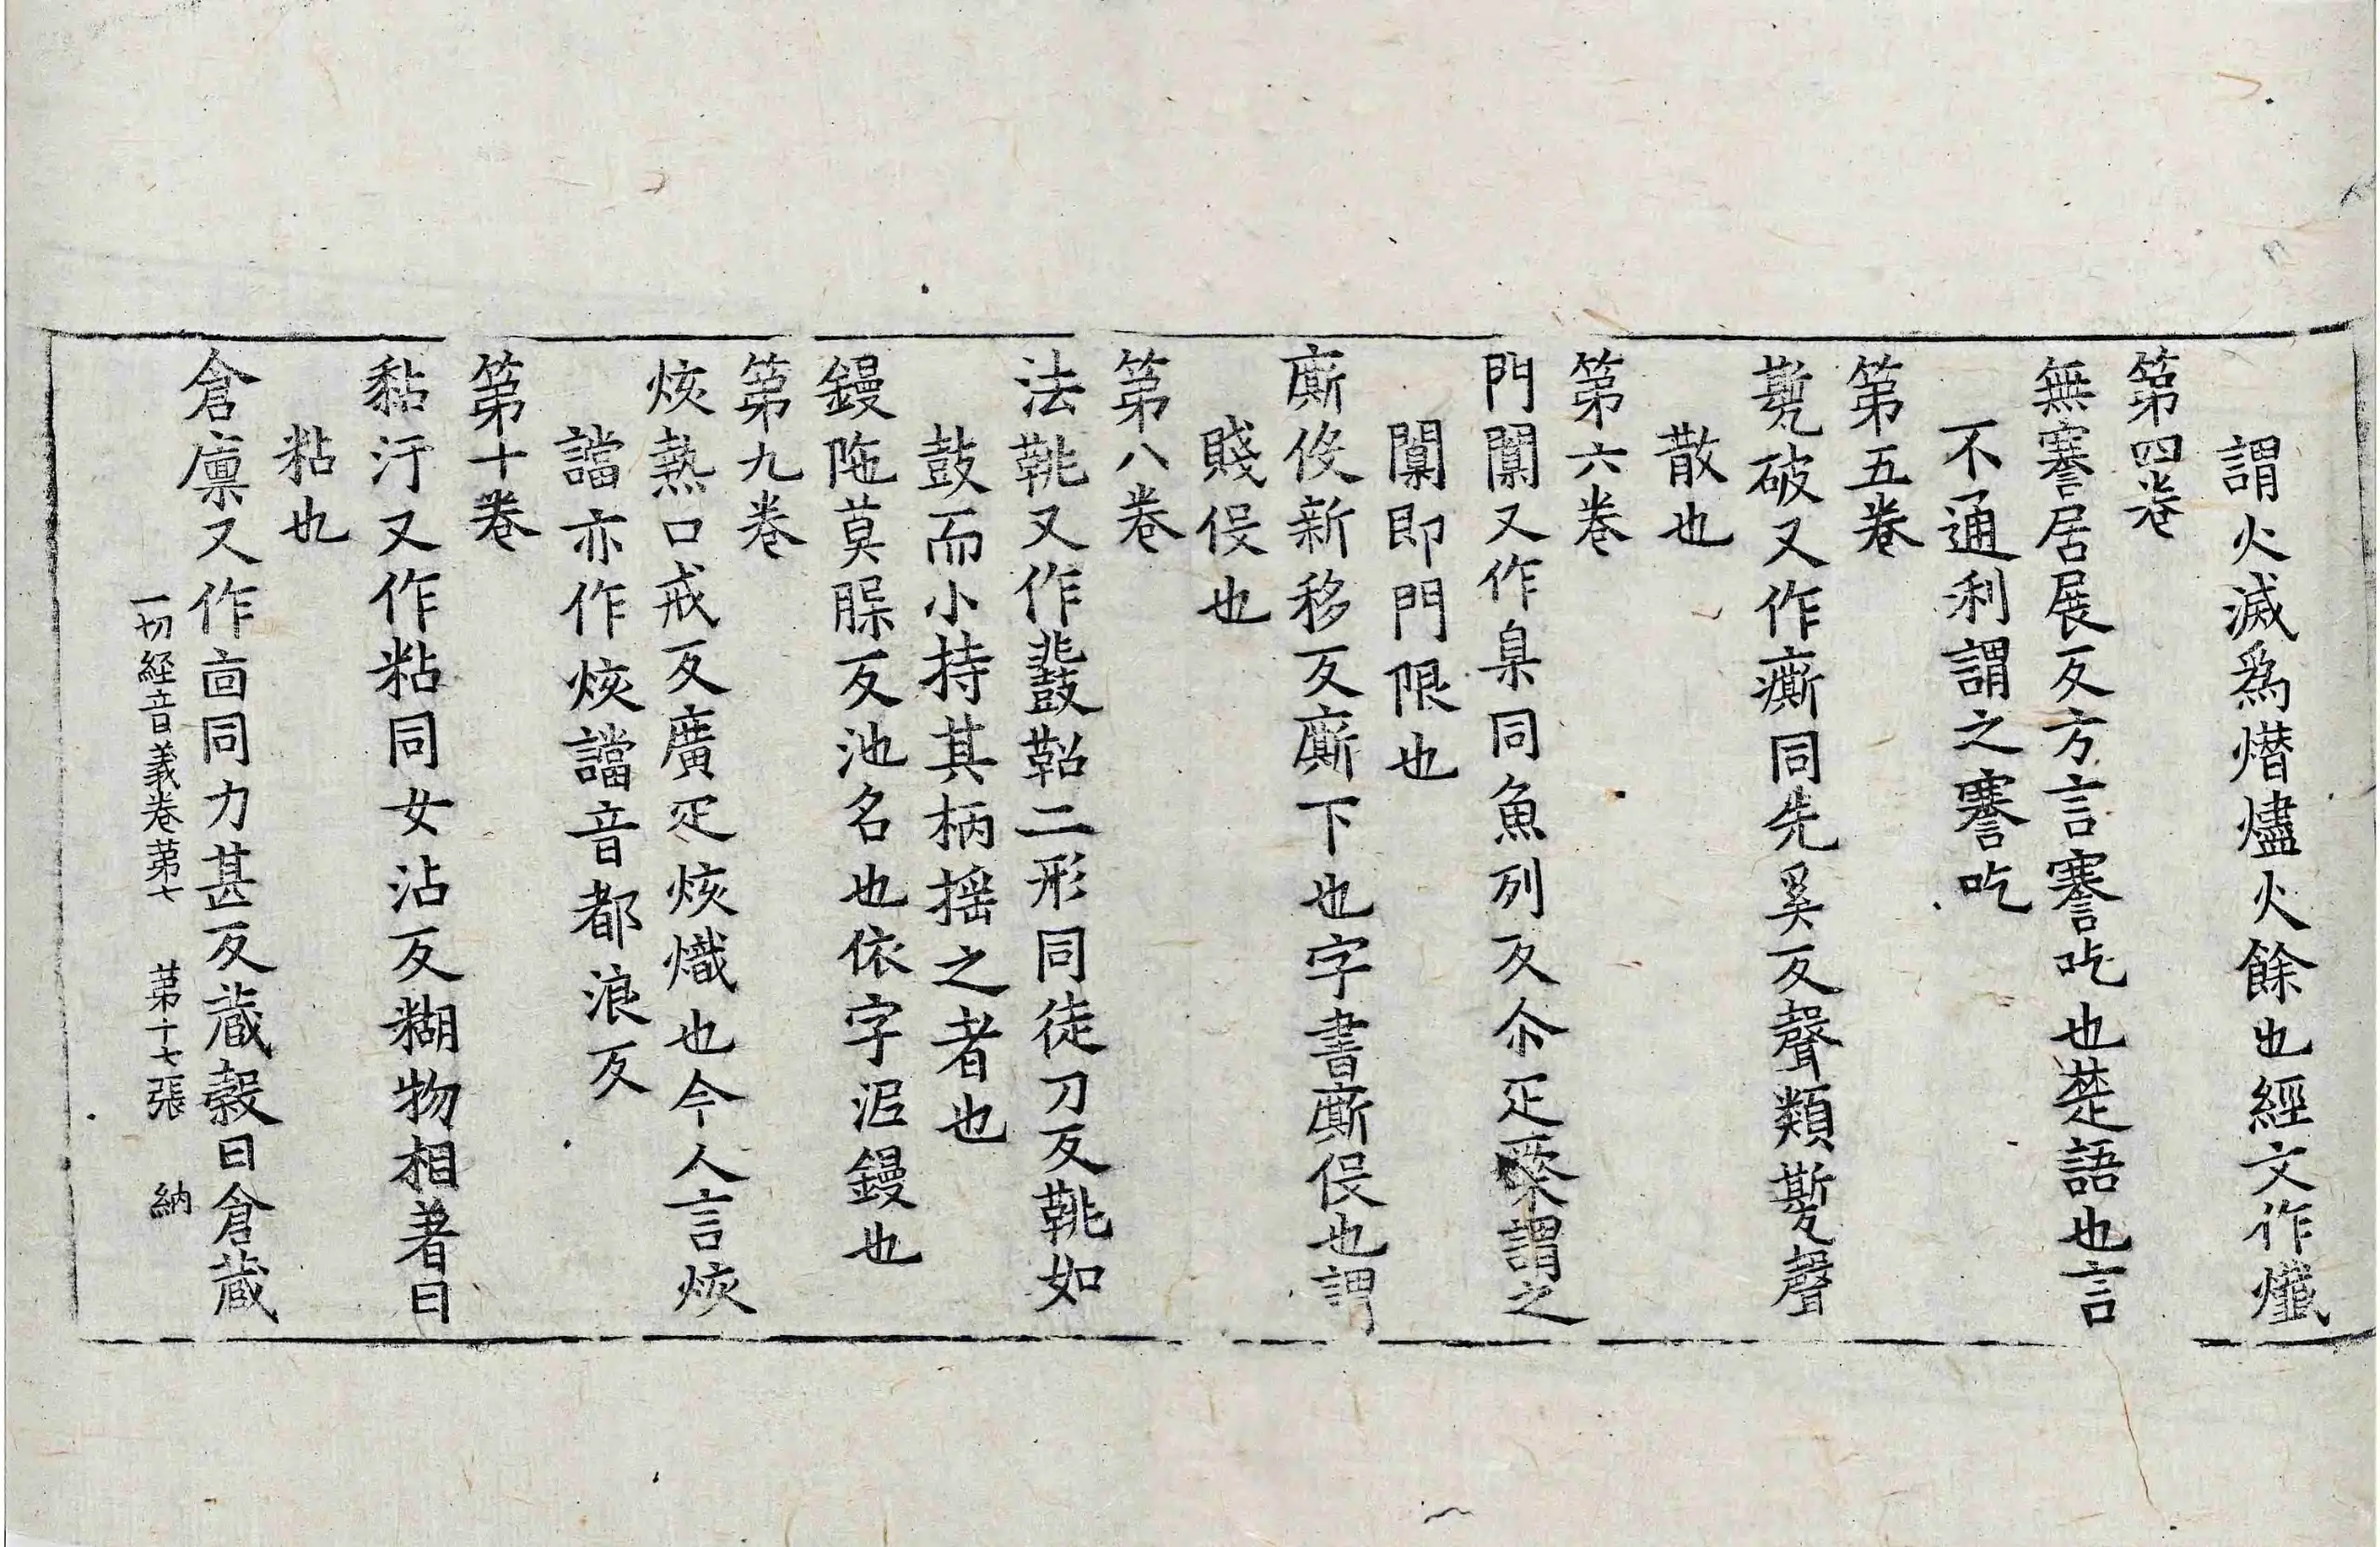 謂火滅爲熸燼火餘也經文作㸋
第四卷
無謇居展反方言謇吃也楚語也言
不通利謂之謇吃
第五卷
甈破又作廝同先奚反聲類㒋聲
散也
第六卷
門闑又作臬同魚列反尒疋橜謂之
闑即門限也
廝伇新移反廝下也字書廝伇也謂
賤伇也
第八卷
法鞉又作鼗鞀二形同徒刀反鞉如
鼓而小持其柄摇之者也
鏝陁莫𦜉反池名也依字泥鏝也
第九卷
烗熱口戒反廣疋烗熾也今人言烗
譡亦作烗譡音都浪反
第十卷
黏汙又作粘同女沾反糊物相著曰
粘也
倉廩又作㐭同力甚反蔵穀曰倉蔵
一切經音義卷第七 第十七張 納